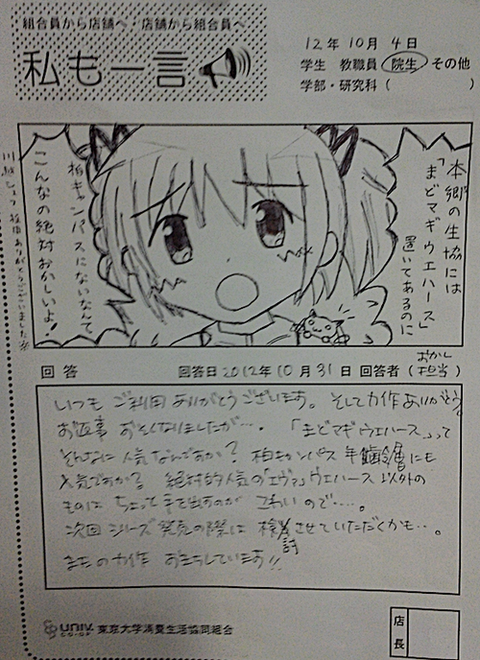 組合員から店舗へ・店舗から組合員へ
私も一言
12年10月4日
学生 教職員 院生 その他
学部・研究科( )
本郷の生協には
「まどマギウエハース」
置いてあるのに
柏キャンパスにないなんて、
こんなの絶対おかしいよ!
ありがとうございました
回答 回答日2012年10月31日 回答者(おかし担当)
いつもご利用ありがとうございます。そして力作ありがとう。
お返事おそくなりましたが…。「まどマギウエハース」って
そんなに人気なんですか? 柏キャンパス年齢層にも
人気ですか? 絶対的人気の「エヴァ」ウエハース以外の
ものはちょっと手を出すのがこわいので…。
次回シリーズ発売の際は検討させていただくかも…。
またの力作お待ちしています!!
univ.
CO-OP 東京大学消費生活協同組合
店長